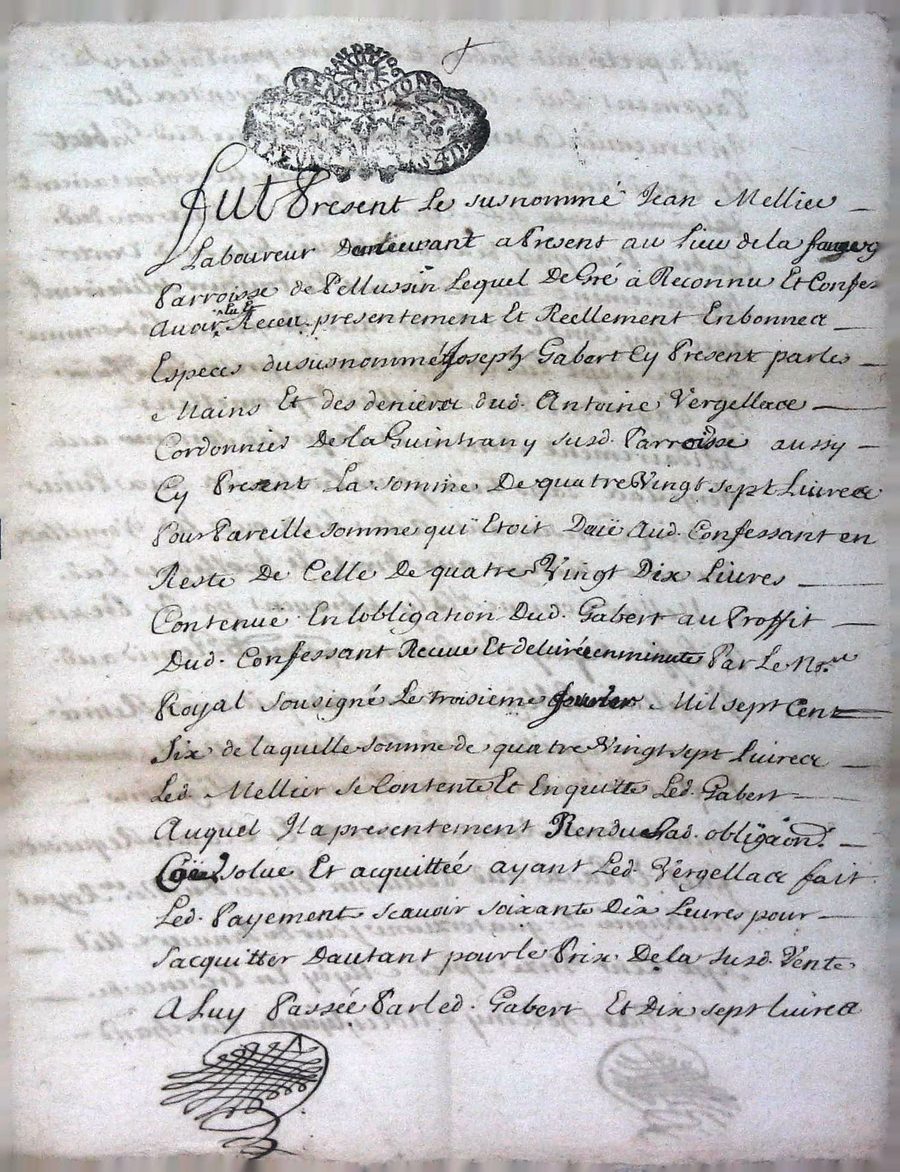 GEN. DE LION
Fut Present Le susnommé Jean Mellier
Laboureur Demeurant a Present au Lieu de la
Parroisse de Pellussin Lequel De Gré à Reconnu Et Confes
Avoir Receu presentement Et Reellement En bonnes
Especes du susnommé Joseph Gabert Cy Present par les
Mains Et des deniers dud. Antoine Vergellas
Cordonnier De la Guintrany susd. Parroisse aussy
Cy Present La somme De quatre Vingt sept Livres
Pour Pareille somme qui Etoit Deüe Aud. Confessant en
Reste De Celle De quatre Vingt Dix Livres
Contenuë En lobligation Dud. Gabert au Proffit
Dud. Confessant Receue Et delivrée en minute Par Le No.re
Royal sousigné Le troisieme Mil sept Cent
Six de laquelle somme de quatre Vingt sept Livres
Led. Mellier se Contente Et En quitte Led. Gabert
Auquel Il a presentement Rendu Lad. obligaon.
solue Et acquittée ayant Led. Vergellas fait
Led. Payement scavoir soixante Dix Livres pour
sacquitter Dautant pour le Prix De la susd. Vente
A Luy Passée Par led. Gabert Et Dix sept Livres